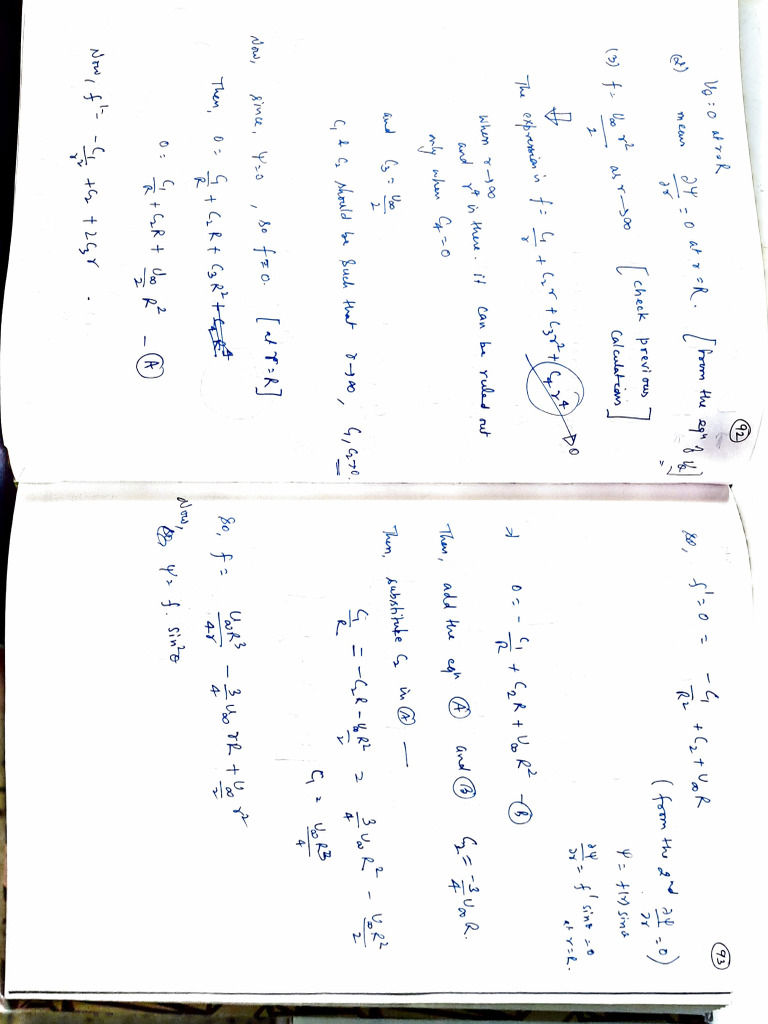 92
V_θ = 0 at r = R
(2) means ∂ψ/∂r = 0 at r = R. [from the eqn of V_θ]
(3) f = U∞/2 r² as r → ∞ [check previous calculations]
The expression is f = C₁/r + C₂r + C₃r² + C₄r⁴ → 0
when r → ∞
and r⁴ is there. it can be ruled out
only when C₄ = 0
and C₃ = U∞/2
C₁ & C₂ should be such that r → ∞, C₁, C₂ → 0.
Now, since, ψ = 0, so f = 0. [at r = R]
Then, 0 = C₁/R + C₂R + C₃R² + C₄R⁴
0 = C₁/R + C₂R + U∞/2 R² — (A)
Now, f' = -C₁/r² + C₂ + 2C₃r.
93
So, f' = 0 = -C₁/R² + C₂ + U∞R
(from the 2nd ∂ψ/∂r = 0)
ψ = f(r) sin²θ
∂ψ/∂r = f' sin²θ = 0
at r = R.
⇒ 0 = -C₁/R + C₂R + U∞R² — (B)
Then, add the eqn (A) and (B) C₂ = -3/4 U∞R.
Then, substitute C₂ in (A) —
C₁/R = -C₂R - U∞/2 R² = 3/4 U∞R² - U∞R²/2
C₁ = U∞R³/4
So, f = U∞R³/4r - 3/4 U∞rR + U∞/2 r²
Now,
ψ = f. sin²θ